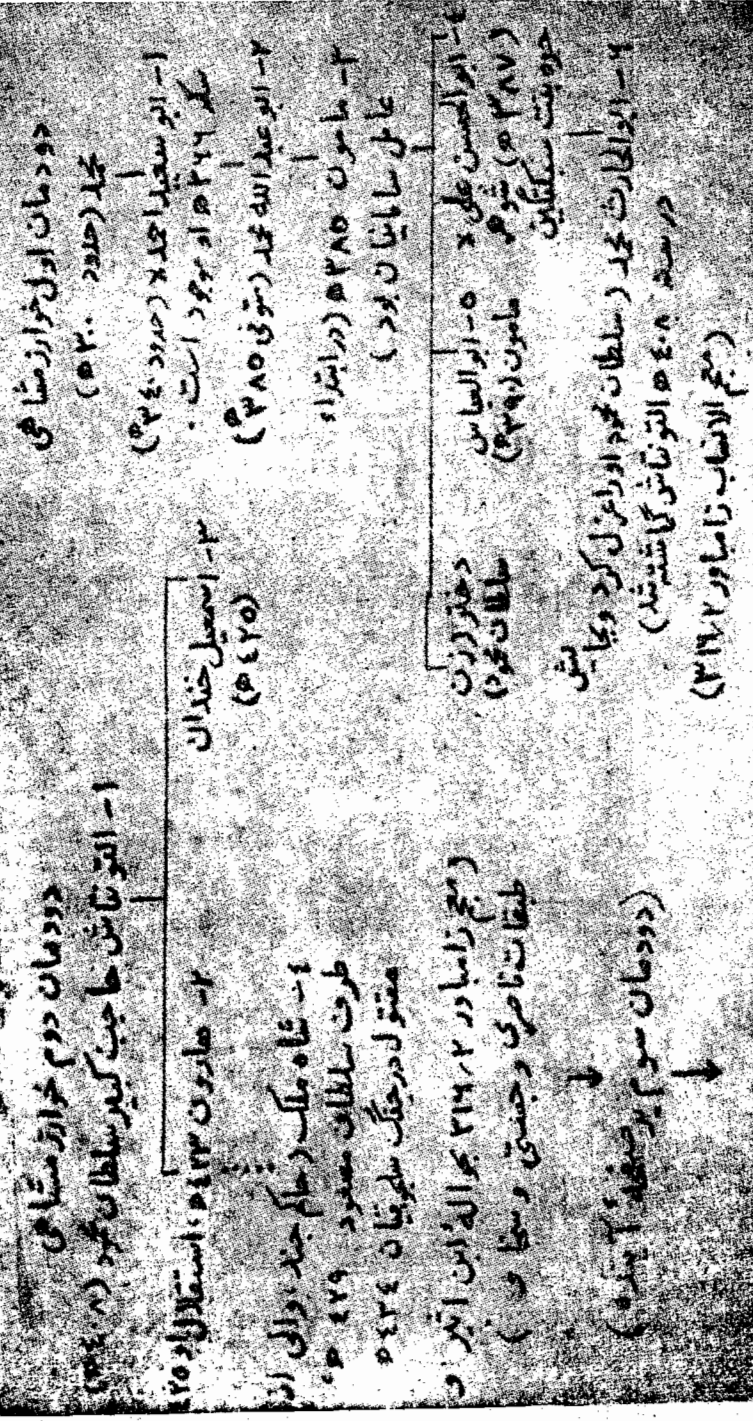 دودمان اول خوارزمشاهی
محمد (حدود ۳۰۰ ھ)
۱- ابو سعید احمد × (حدود ۳۴۰ ھ)
سکه ۳۶۶ ھ او موجود است.
۲- ابو عبدالله محمد (متوفی ۳۸۵ ھ)
۳- مامون ۳۸۵ ھ (در ابتداء
عامل سامانیان بود)
۴- ابوالحسن علی ×
(۳۸۷ ھ) شوهر
حره بنت سبکتگین
۵- ابوالعباس
مامون (۳۹۰ ھ)
دختر (زن
سلطان محمود)
۶- ابوالحارث محمد (سلطان محمود او را عزل کرد و بجایش
در سنه ۴۰۸ ھ التونتاش گماشته شد)
(معجم الانساب زامباور ۲/۳۱۶)
دودمان دوم خوارزمشاهی
۱- التونتاش حاجب کبیر سلطان محمود (۴۰۸ ھ)
۲- هارون ۴۲۳ ھ، استقلال او ۴۲۵
۳- اسمعیل خندان
(۴۲۵ ھ)
۴- شاه ملک (حاکم جند، والی از
طرف سلطان مسعود ۴۲۹ ھ،
مقتول در جنگ سلجوقیان ۴۳۴ ھ
(معجم زامباور ۲/۳۱۶ بحوالهٔ ابن اثیر و
طبقات ناصری و و .)
(دودمان سوم بر صفحهٔ آینده)